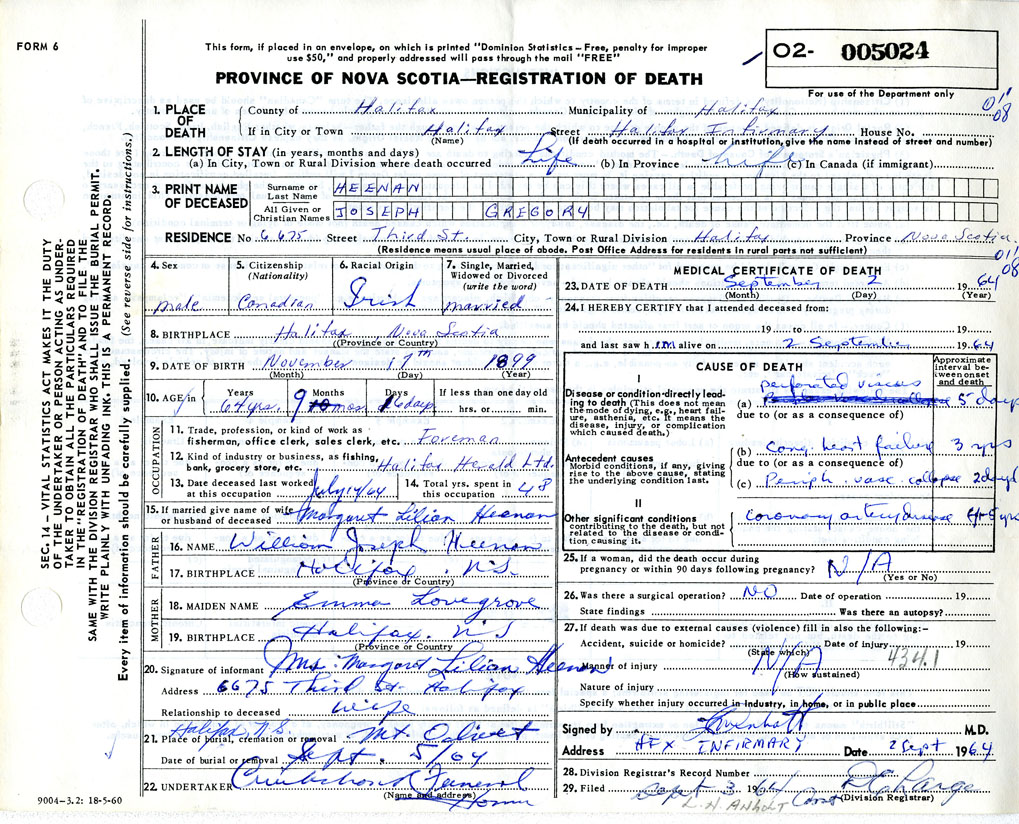 FORM 6
This form, if placed in an envelope, on which is printed "Dominion Statistics – Free, penalty for improper
use $50," and properly addressed will pass through the mail "FREE"
PROVINCE OF NOVA SCOTIA—REGISTRATION OF DEATH
02- 005024
For use of the Department only
01'
08
1. PLACE OF DEATH
County of Halifax Municipality of Halifax
If in City or Town Halifax Street Halifax Infirmary House No.
(Name) (If death occurred in a hospital or institution, give the name instead of street and number)
2. LENGTH OF STAY (in years, months and days)
(a) In City, Town or Rural Division where death occurred Life (b) In Province Life (c) In Canada (if immigrant)
3. PRINT NAME OF DECEASED
Surname or Last Name HEENAN
All Given or Christian Names JOSEPH GREGORY
RESIDENCE No 6675 Street Third St. City, Town or Rural Division Halifax Province Nova Scotia
(Residence means usual place of abode. Post Office Address for residents in rural parts not sufficient)
01'
08
SEC. 14 — VITAL STATISTICS ACT MAKES IT THE DUTY
OF THE UNDERTAKER OR PERSON ACTING AS UNDER-
TAKER TO OBTAIN ALL THE PARTICULARS REQUIRED
IN THE "REGISTRATION OF DEATH" AND TO FILE THE
SAME WITH THE DIVISION REGISTRAR WHO SHALL ISSUE THE BURIAL PERMIT.
WRITE PLAINLY WITH UNFADING INK. THIS IS A PERMANENT RECORD.
Every item of information should be carefully supplied. (See reverse side for instructions.)
4. Sex male
5. Citizenship (Nationality) Canadian
6. Racial Origin Irish
7. Single, Married, Widowed or Divorced (write the word) married
8. BIRTHPLACE Halifax Nova Scotia
(Province or Country)
9. DATE OF BIRTH November 17th 1899
(Month) (Day) (Year)
10. AGE Years Months Days If less than one day old
64 yrs. 9 10 mon 16 days hrs. or min.
OCCUPATION
11. Trade, profession, or kind of work as
fisherman, office clerk, sales clerk, etc. Foreman
12. Kind of industry or business, as fishing,
bank, grocery store, etc. Halifax Herald Ltd.
13. Date deceased last worked at this occupation July 17/64
14. Total yrs. spent in this occupation 48
15. If married give name of wife
or husband of deceased Margaret Lilian Heenan
FATHER
16. NAME William Joseph Heenan
17. BIRTHPLACE Halifax. N.S.
(Province or Country)
MOTHER
18. MAIDEN NAME Emma Lovegrove
19. BIRTHPLACE Halifax. N.S
(Province or Country)
20. Signature of informant Mrs. Margaret Lilian Heenan
Address 6675 Third St. Halifax
Relationship to deceased wife
Halifax, N.S.
21. Place of burial, cremation or removal Mt. Olivet
Date of burial or removal Sept. 5/64
22. UNDERTAKER Cruikshank Funeral
(Name and address) Home
9004–3.2: 18-5-60
MEDICAL CERTIFICATE OF DEATH
23. DATE OF DEATH September 2 1964
(Month) (Day) (Year)
24. I HEREBY CERTIFY that I attended deceased from:
19 to 19
and last saw him alive on 2 September 1964
CAUSE OF DEATH
Approximate interval between onset and death
I
Disease or condition directly leading to death (This does not mean the mode of dying, e.g., heart failure, asthenia, etc. It means the disease, injury, or complication which caused death.)
perforated viscus
(a) 5 days
due to (or as a consequence of)
Antecedent causes
Morbid conditions, if any, giving rise to the above cause, stating the underlying condition last.
(b) Cong. heart failure 3 yrs
due to (or as a consequence of)
(c) Periph. vasc. collapse 2 days
II
Other significant conditions
contributing to the death, but not related to the disease or condition causing it.
coronary artery disease 4-5 yrs
25. If a woman, did the death occur during
pregnancy or within 90 days following pregnancy? N/A
(Yes or No)
26. Was there a surgical operation? NO Date of operation 19
State findings Was there an autopsy?
27. If death was due to external causes (violence) fill in also the following:–
Accident, suicide or homicide? Date of injury 19
(State which)
434.1
Manner of injury N/A
(How sustained)
Nature of injury
Specify whether injury occurred in industry, in home, or in public place
Signed by M.D.
Address HFX INFIRMARY Date 2 Sept 1964
28. Division Registrar's Record Number
29. Filed Sept 3 1964
(Division Registrar)